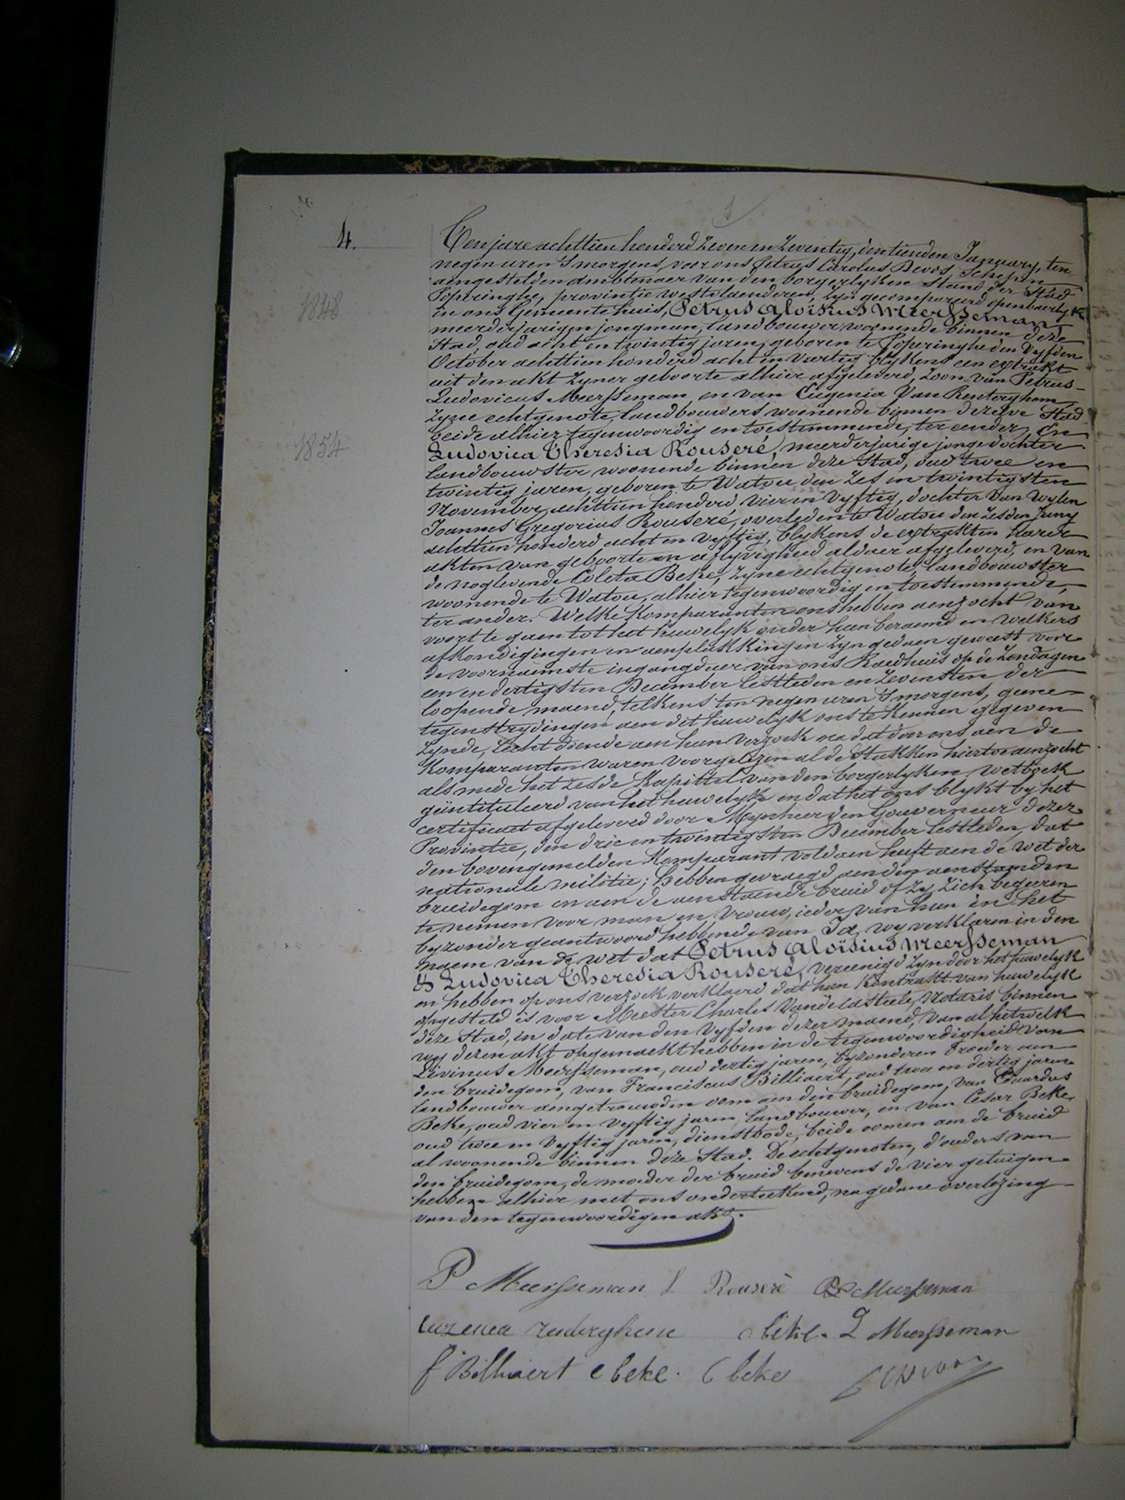 4.
1848
1854
Ten jare achttien honderd zeven en zeventig, den tienden January, ten
negen uren 's morgens, voor ons Petrus Carolus Devos, Schepen
aengestelden ambtenaer van den borgerlyken Stand der Stad
Poperinghe, provintie westvlaenderen, zyn gecompareerd openbaerlyk
in ons Gemeentehuis, Petrus Aloïsius Meersseman,
meerderjarigen jongman, landbouwer, woonende binnen deze
Stad, oud acht en twintig jaren, geboren te Poperinghe den vyfden
October achttien honderd acht en veertig blykens een extrakt
uit den akt zyner geboorte alhier afgeleverd, zoon van Petrus
Ludovicus Meersseman, en van Eugenia Van Renterghem,
zyne echtgenote, landbouwers, woonende binnen dezelve Stad
beide alhier tegenwoordig en toestemmende, ter eender, En
Ludovica Theresia Rouseré, meerderjarige jongedochter
landbouwster woonende binnen deze Stad, oud twee en
twintig jaren, geboren te Watou den zes en twintigsten
November achttien honderd vier en vyftig, dochter van wylen
Joannes Gregorius Rouseré, overleden te Watou den zesden Juny
achttien honderd acht en vyftig, blykens de extrakten harer
akten van geboorte en aflyvigheid aldaer afgeleverd, en van
de noglevende Coleta Beke, zyne echtgenote, landbouwster
woonende te Watou, alhier tegenwoordig en toestemmende,
ter ander. Welke Komparanten ons hebben aenzocht van
voort te gaen tot het huwelyk onder hun beraemd en welkers
afkondigingen en aenplakkingen zyn gedaen geweest voor
de voornaemste ingangdeur van ons Raedhuis op de Zondagen
een en dertigsten December lestleden en zevensten der
loopende maend, telkens ten negen uren 's morgens, geene
tegenstrydingen aen dit huwelyk ons te kennen gegeven
zynde, Recht doende aen hun verzoek na dat door ons aen de
Komparanten waren voorgelezen al de stukken hiertoe aenzocht
als mede het zesde Kapittel van den borgerlyken wetboek
geïntituleerd van het huwelyk en dat het ons blykt by het
certificaet afgeleverd door Mynheer den Gouverneur dezer
Provintie, den drie en twintigsten December lestleden, dat
den bovengemelden Komparant voldaen heeft aen de wet der
nationale militie; hebben gevraegd aen den aenstaenden
bruidegom en aen de aenstaende bruid of zy zich begeeren
te nemen voor man en vrouw, ieder van hun in het
byzonder geantwoord hebbende van Ja, wy verklaren in den
naem van de wet dat Petrus Aloïsius Meersseman
& Ludovica Theresia Rouseré, vereenigd zyn door het huwelyk
en hebben op ons verzoek verklaerd dat hun kontrakt van huwelyk
opgesteld is voor Meester Charles Vandelasteele, Notaris binnen
deze Stad, in date van den vyfden dezer maend, van al hetwelk
wy dezen akt opgemaekt hebben in de tegenwoordigheid van
Livinus Meersseman, oud dertig jaren, byzonderen broeder aen
den bruidegom, van Franciscus Billiaert, oud twee en dertig jaren
landbouwer aengetrouwden oom aen den bruidegom, van Eduardus
Beke, oud vier en vyftig jaren, landbouwer, en van César Beke,
oud twee en vyftig jaren, dienstbode, beide oomen aen de bruid
al woonende binnen deze Stad. De echtgenoten, d'ouders van
den bruidegom, de moeder der bruid benevens de vier getuigen
hebben alhier met ons onderteekend, na gedane overlezing
van den tegenwoordigen akt.
P Meersseman L Rouseré Meersseman
beke. L Meersseman
f Billiaert e beke. C beke